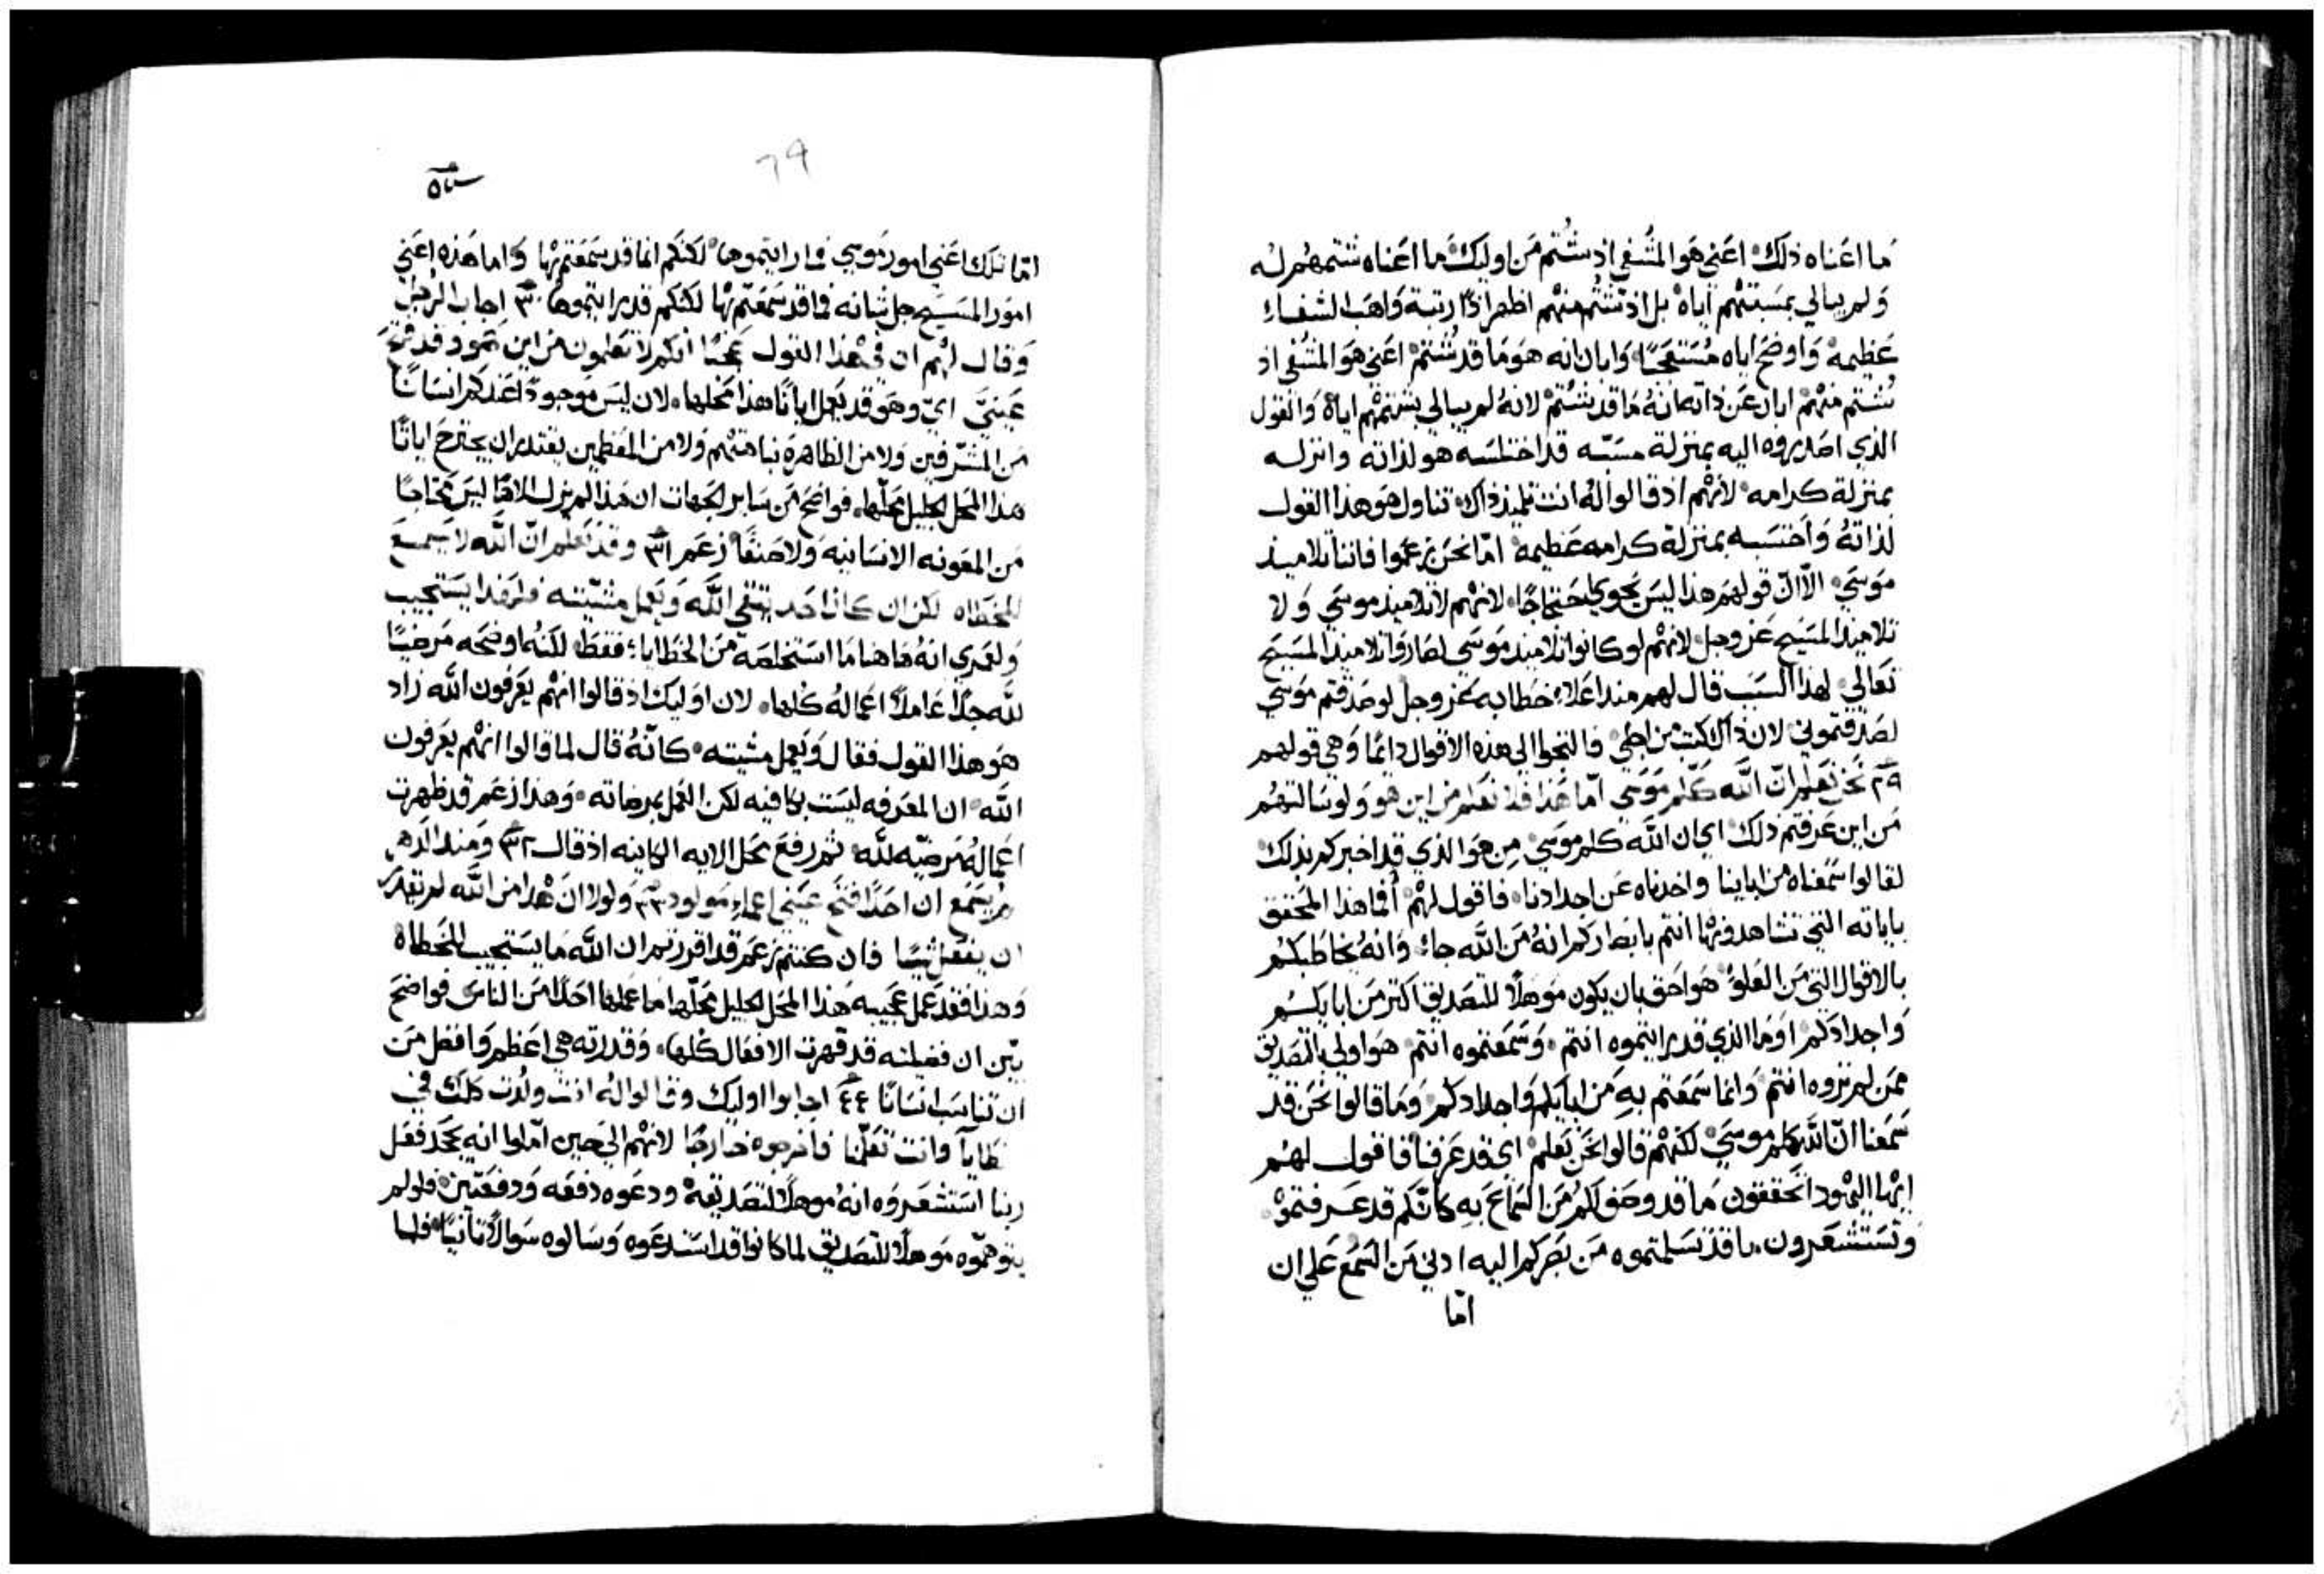 ما اعناه ذلك اعني هو المشفي اذ شتم من اوليك ما اعناه شتمهم له
ولم يبالي بمسبتهم اياه بل اذ شتم منهم اظهر اذًا رتبة واهب الشفاء
عظيمة واوضح اياه وابان انه هو ما قد شتم اعني هو المشفي اذ
شتم منهم ابان عن ذاته انه ما قد شتم لانه لم يبالي بشتمهم اياه والقول
الذي اصدروه اليه بمنزلة مسبّه قد اختلسه هو لذاته وانزله
بمنزلة كرامه لانهم اذ قالوا له انت تلميذ ذاك تناول هو هذا القول
لذاته واحتسبه بمنزلة كرامه عظيمة امّا نحن زعموا فاننا تلاميذ
موسي الّا انّ قولهم هذا ليس يحوي احتجاجًا لانهم لا تلاميذ موسي ولا
تلاميذ المسيح عز وجل لانهم لو كانوا تلاميذ موسي لصاروا تلاميذ المسيح
تعالي لهذا السبب قال لهم منذ اعلاء خطابه عز وجل لو صدقتم موسي
لصدقتموني لان ذاك كتب من اجلي فالتجوا الي هذه الاقوال دايمًا وهي قولهم
٢٩ نحن نعلم انّ الله كلّم موسي امّا هذا فلا نعلم من اين هو ولو سالتهم
من اين عرفتم ذلك اي ان الله كلم موسي من هو الذي قد اخبركم بذلك
لقالوا سمعناه من ابائنا واخذناه عن اجدادنا فاقول لهم أفما هذا المحقق
باياته التي تشاهدونها انتم بابصاركم انه من الله جاء وانه يخاطبكم
بالاقوال التي من العلوّ هو احق بان يكون موهلًا للتصديق اكثر من ابايكم
واجدادكم اوما الذي قد رايتموه انتم وسمعتموه انتم هو اولي بالتصديق
ممن لم تروه انتم وانما سمعتم به من ابايكم واجدادكم وما قالوا نحن قد
سمعنا انّ الله كلم موسي لكنهم قالوا نحن نعلم اي قد عرفنا فاقول لهم
ايها اليهود اتحققون ما قد وصف لكم من السماع به كانّكم قد عرفتموه
وتستشعرون ما قد تسلمتموه من بصركم اليه ادني من السمع علي ان
امّا
٦٩
امّا تلك اعني امور موسي فما رايتموها لكنكم انما قد سمعتم بها واما هذه اعني
امور المسيح جل شانه فما قد سمعتم بها لكنكم قد رايتموها ٣٠ اجاب الرجل
وقال لهم ان في هذا القول عجبًا انكم لا تعلمون من اين هو وقد فتح
عينيّ ايّ وهو قد يعمل اياتًا هذا محلها لان ليس موجودًا عندكم انسانًا
من المشرّفين ولا من الظاهرة نباهتهم ولا من المعظمين يقتدر ان يجترح اياتًا
هذا المحل الجليل محلّها فواضح من ساير الجهات ان هذا لم يزل الاهًا ليس محتاجًا
من المعونه الانسانيه ولا صنفًا زعم ٣١ وقد نعلم انّ الله لا يسمع
للخطاه لكن ان كان احد يتقي الله ويعمل مشيّته فلهذا يستجيب
ولعمري انه هاهنا ما استخلصه من الخطايا فقط لكنه اوضحه مرضيًا
لله جدًا عاملًا اعماله كلها لان اوليك اذ قالوا انهم يعرفون الله زاد
هو هذا القول فقال ويعمل مشيته كانّه قال لما قالوا انهم يعرفون
الله ان المعرفه ليست بكافيه لكن العمل بمرضاته وهذا زعم قد ظهرت
اعماله مرضيّه لله ثم رفع محل الايه الكاينه اذ قال ٣٢ ومنذ الدهر
لم يسمع ان احدًا فتح عيني اعماء مولود ٣٣ ولولا ان هذا من الله لم يقدر
ان يفعل شيًا فان كنتم زعم قد اقررتم ان الله ما يستجيب للخطاه
وهذا فقد عمل عجيبه هذا المحل الجليل محلّها ما عملها احدًا من الناس فواضح
بيّن ان فضيلته قد قهرت الافعال كلها وقدرته هي اعظم وافضل من
ان تناسب انسانًا ٣٤ اجابوا اوليك وقالوا له انت ولدت كلك في
خطايا وانت تعلّمنا فاخرجوه خارجًا لانهم الي حين امّلوا انه يجحد فعل
ربنا استشعروه انه موهلًا لتصديقه ودعوه دفعه ودفعتين فلو لم
يتوهمّوه موهلًا للتصديق لما كانوا قد استدعوه وسالوه سوالًا ثانيًا فلما